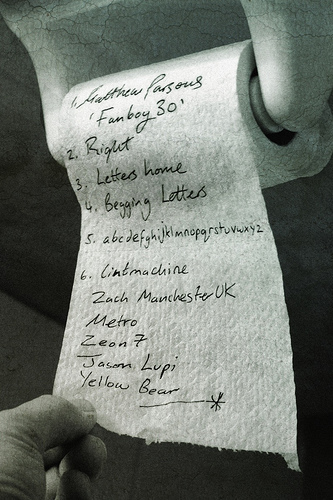 1. Matthew Parsons
'Fanboy 30'
2. Right
3. Letters home
4. Begging Letters
5. abcdefghijklmnopqrstuvwxyz
6. Lintmachine
Zach Manchester UK
Metro
Zeon 7
Jason Lupi
Yellow Bear